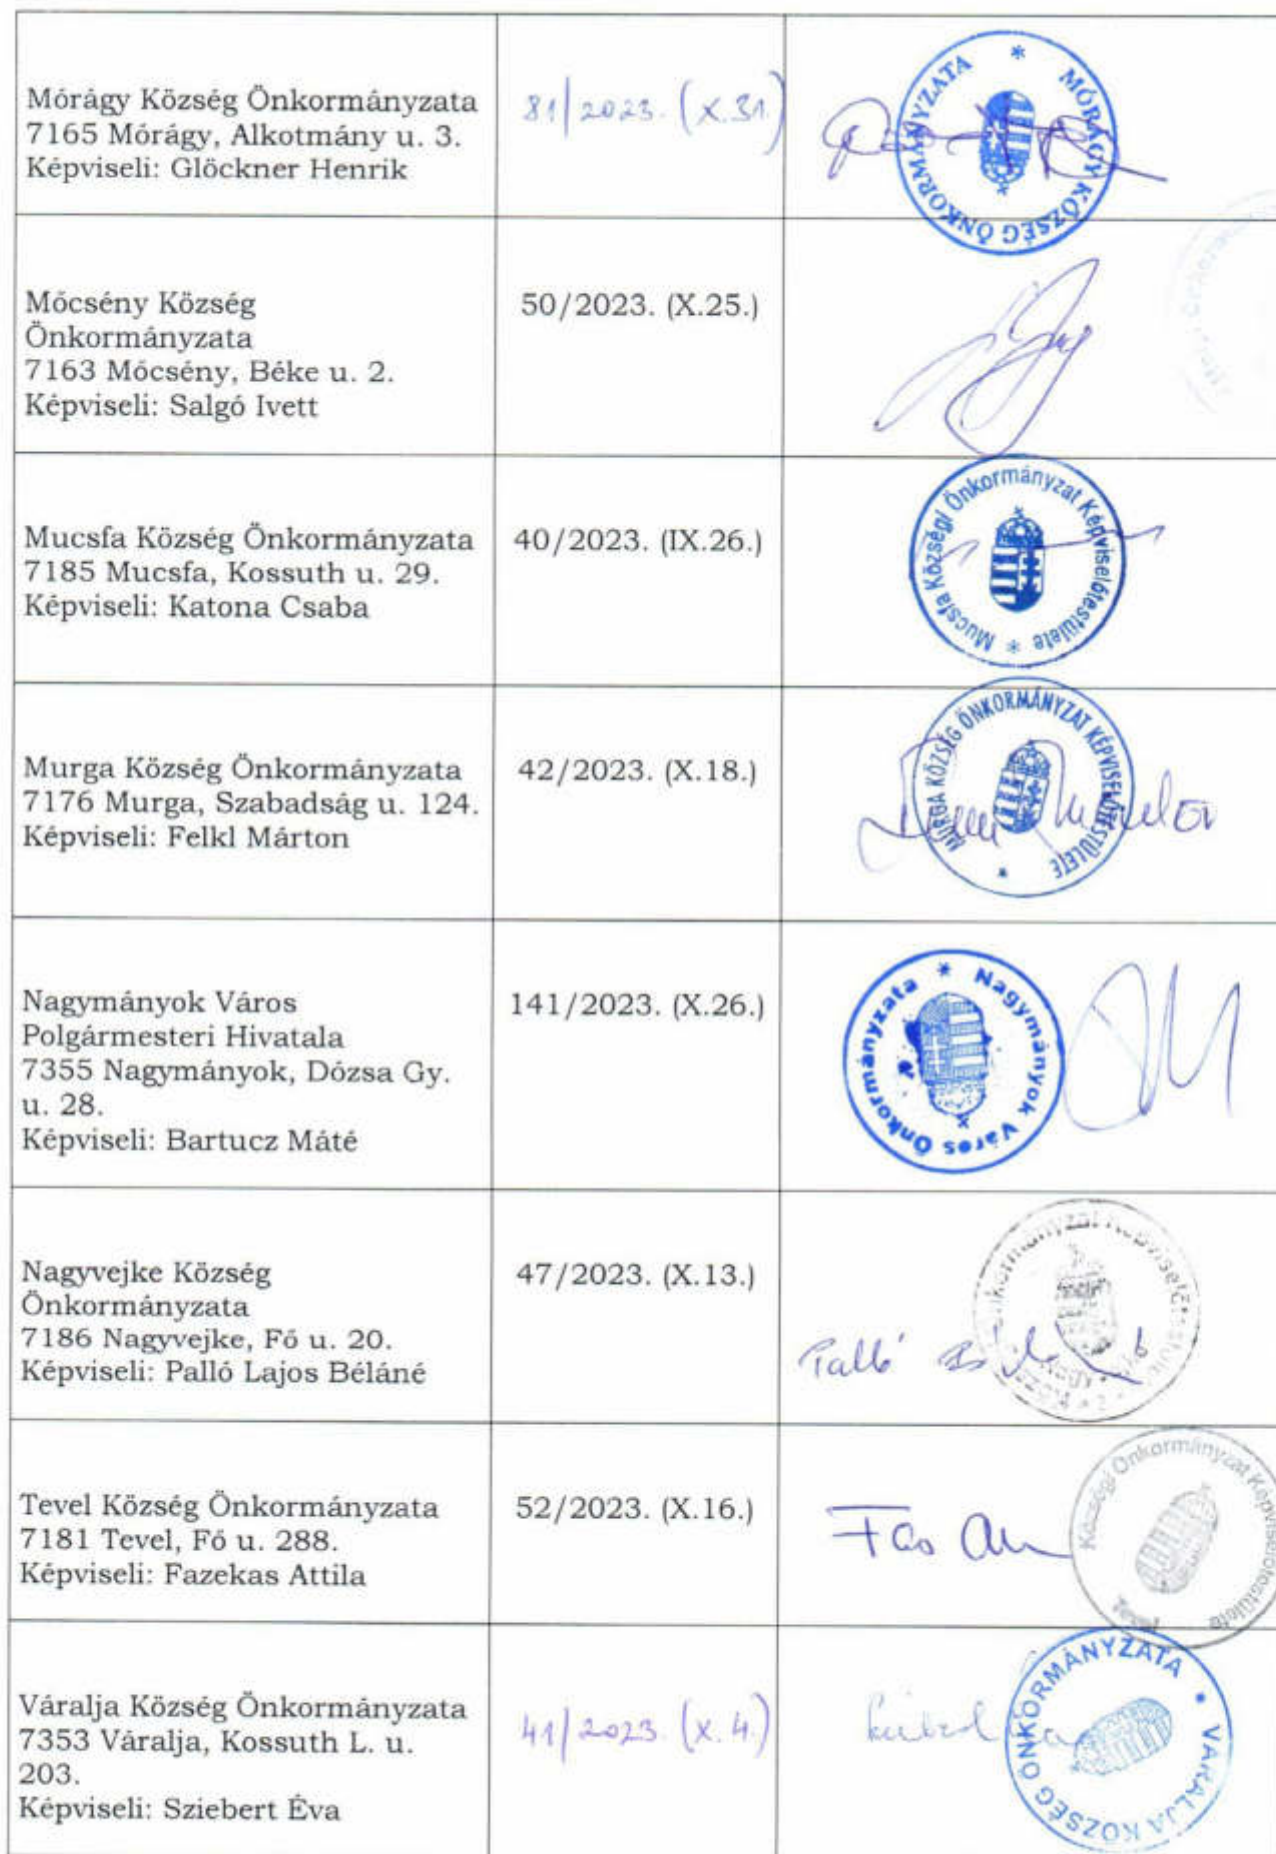 Mórágy Község Önkormányzata
7165 Mórágy, Alkotmány u. 3.
Képviseli: Glöckner Henrik
81/2023. (X.31.)
MÓRÁGY KÖZSÉG ÖNKORMÁNYZATA *
Mőcsény Község
Önkormányzata
7163 Mőcsény, Béke u. 2.
Képviseli: Salgó Ivett
50/2023. (X.25.)
Mucsfa Község Önkormányzata
7185 Mucsfa, Kossuth u. 29.
Képviseli: Katona Csaba
40/2023. (IX.26.)
Mucsfa Községi Önkormányzat Képviselőtestülete *
Murga Község Önkormányzata
7176 Murga, Szabadság u. 124.
Képviseli: Felkl Márton
42/2023. (X.18.)
MURGA KÖZSÉG ÖNKORMÁNYZAT KÉPVISELŐTESTÜLETE *
Nagymányok Város
Polgármesteri Hivatala
7355 Nagymányok, Dózsa Gy.
u. 28.
Képviseli: Bartucz Máté
141/2023. (X.26.)
Nagymányok Város Önkormányzata *
Nagyvejke Község
Önkormányzata
7186 Nagyvejke, Fő u. 20.
Képviseli: Palló Lajos Béláné
47/2023. (X.13.)
Palló
Tevel Község Önkormányzata
7181 Tevel, Fő u. 288.
Képviseli: Fazekas Attila
52/2023. (X.16.)
Községi Önkormányzat Képviselőtestülete
Tevel
Váralja Község Önkormányzata
7353 Váralja, Kossuth L. u.
203.
Képviseli: Sziebert Éva
41/2023. (X.4.)
VÁRALJA KÖZSÉG ÖNKORMÁNYZATA •